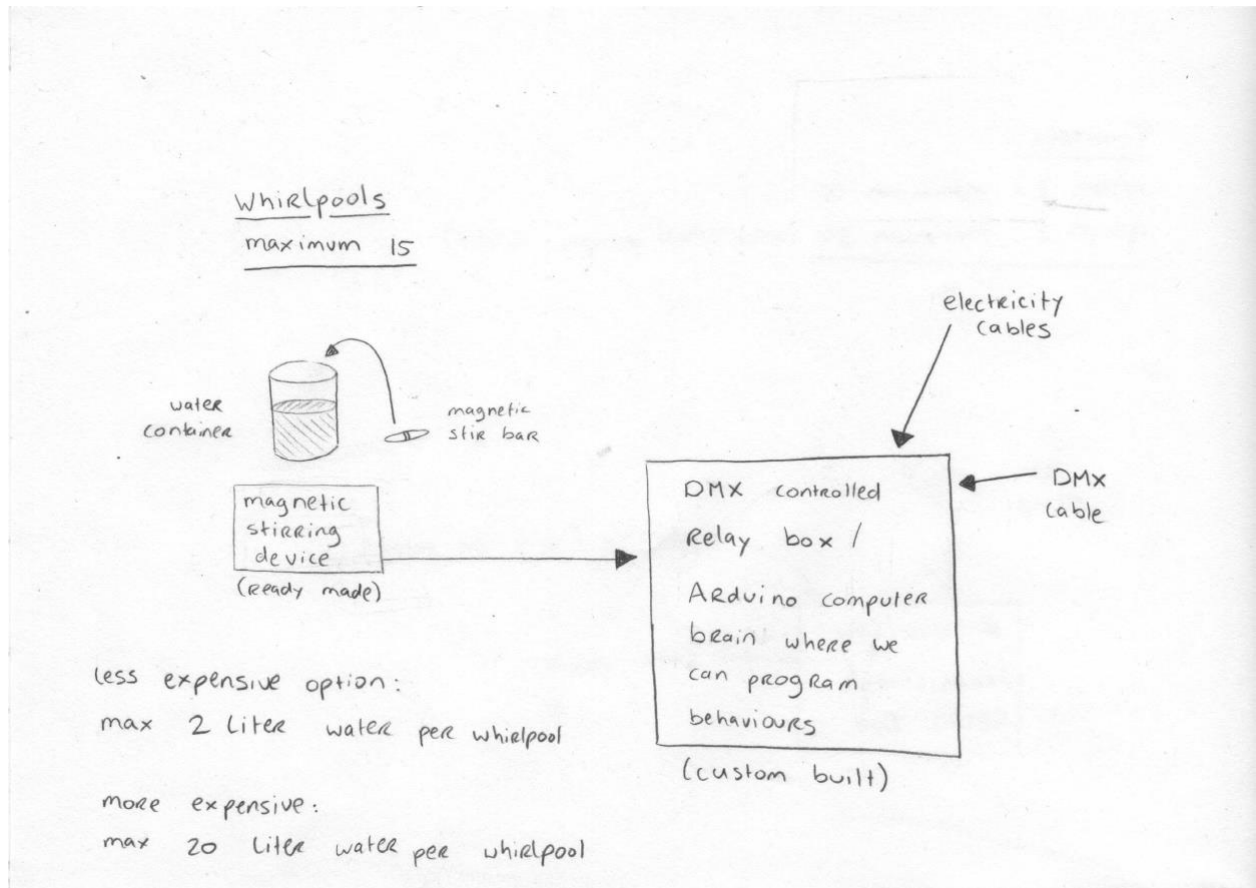 Whirlpools
maximum 15
electricity
cables
water
container
magnetic
stir bar
DMX
cable
magnetic
stirring
device
(Ready made)
DMX controlled
Relay box /
Arduino computer
brain where we
can program
behaviours
(custom built)
less expensive option:
max 2 Liter water per whirlpool
more expensive:
max 20 Liter water per whirlpool